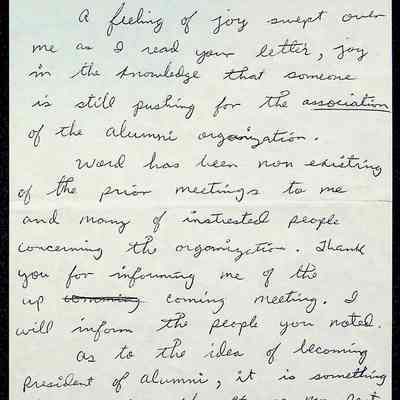 A feeling of joy swept over
me as I read your letter, joy
in the knowledge that someone
is still pushing for the association
of the alumni organization.
Word has been non existing
of the prior meetings to me
and many of instrested people
concerning the organization. Thank
you for informing me of the
up comming coming meeting. I
will inform the people you noted.
As to the idea of becoming
president of alumni, it is something